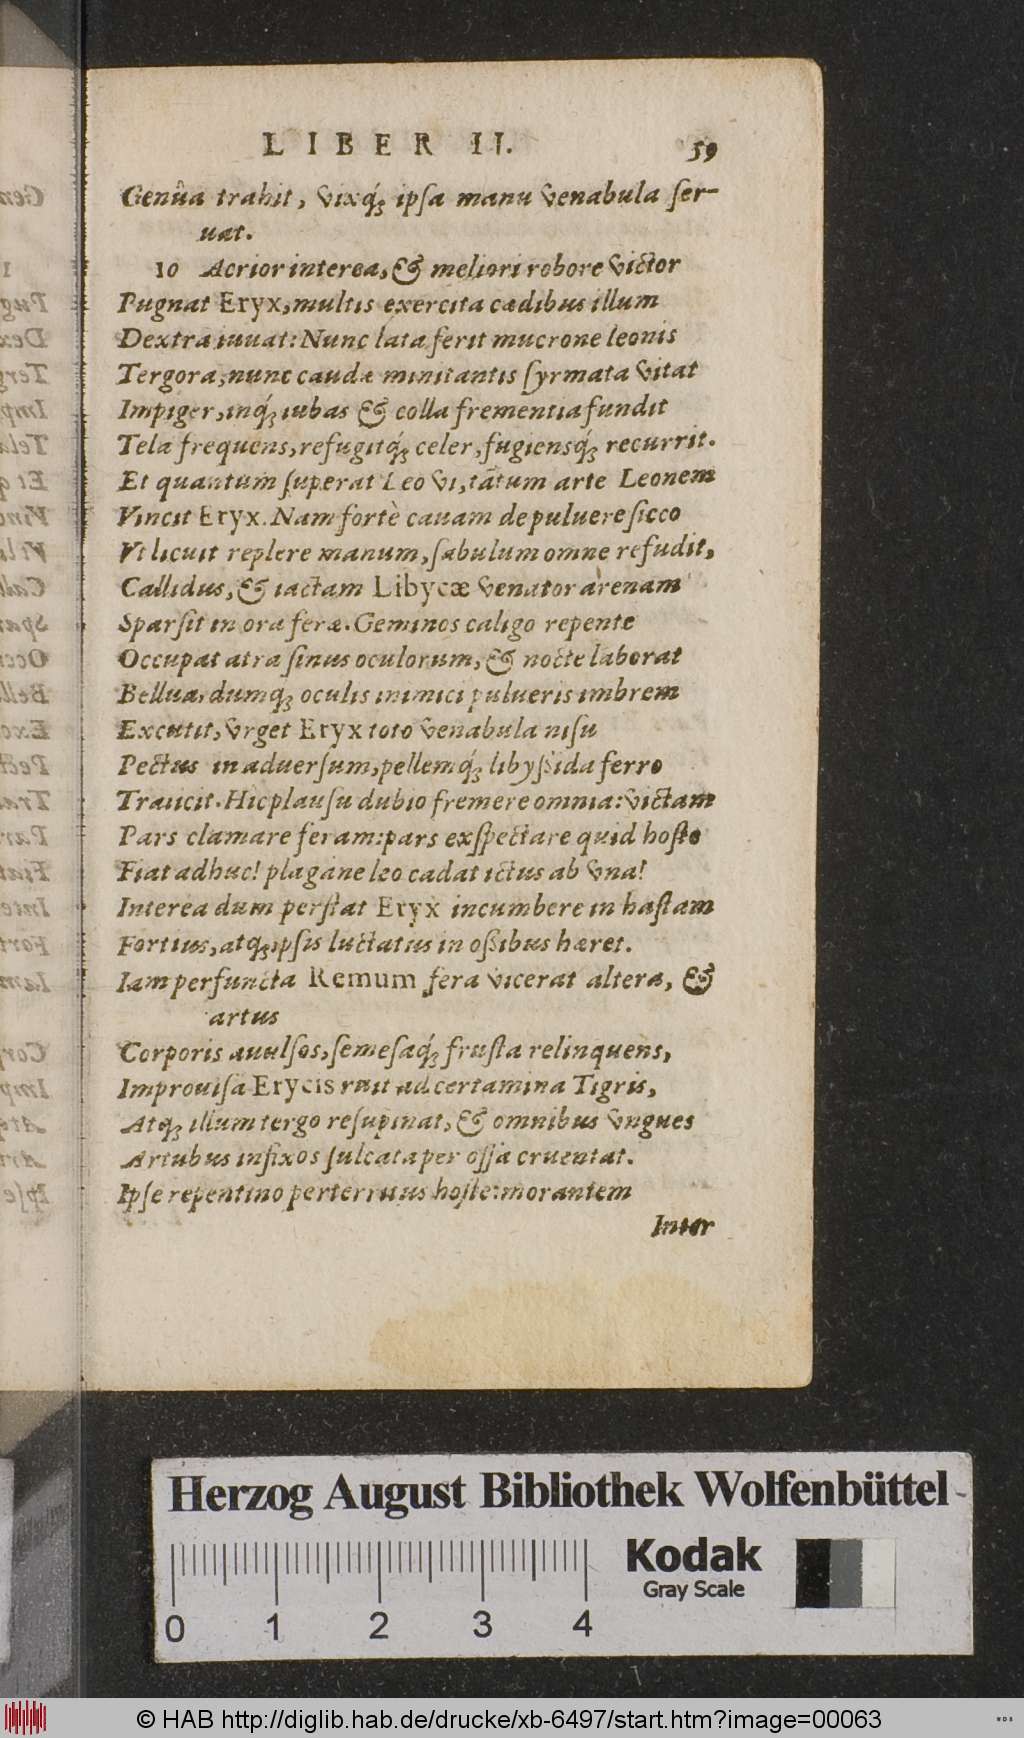 LIBER II. 59
Genûa trahit, vixq́; ipſa manu venabula ſer-
uat.
10 Acrior interea, & meliori robore victor
Pugnat Eryx, multis exercita cædibus illum
Dextra iuuat: Nunc lata ferit mucrone leonis
Tergora, nunc caudæ minitantis ſyrmata vitat
Impiger, inq́; iubas & colla frementia fundit
Tela frequens, refugitq́; celer, fugiensq́; recurrit.
Et quantum ſuperat Leo vi, tãtum arte Leonem
Vincit Eryx. Nam fortè cauam de puluere ſicco
Vt licuit replere manum, ſabulum omne refudit,
Callidus, & iactam Libycæ venator arenam
Sparſit in ora feræ. Geminos caligo repente
Occupat atra ſinus oculorum, & nocte laborat
Bellua, dumq; oculis inimici pulueris imbrem
Excutit, vrget Eryx toto venabula niſu
Pectus in aduerſum, pellemq́; libyßida ferro
Traiicit. Hic plauſu dubio fremere omnia: victam
Pars clamare feram: pars exſpectare quid hoſte
Fiat adhuc! plagane leo cadat ictus ab vna!
Interea dum perſtat Eryx incumbere in haſtam
Fortius, atq; ipſis luctatus in oßibus hæret.
Iam perfuncta Remum fera vicerat altera, &
artus
Corporis auulſos, ſemeſaq́; fruſta relinquens,
Improuiſa Erycis ruit ad certamina Tigris,
Atq; illum tergo reſupinat, & omnibus vngues
Artubus infixos ſulcata per oſſa cruentat.
Ipſe repentino perterritus hoſte: morantem
Inter
Herzog August Bibliothek Wolfenbüttel
Kodak
Gray Scale
0 1 2 3 4
© HAB http://diglib.hab.de/drucke/xb-6497/start.htm?image=00063